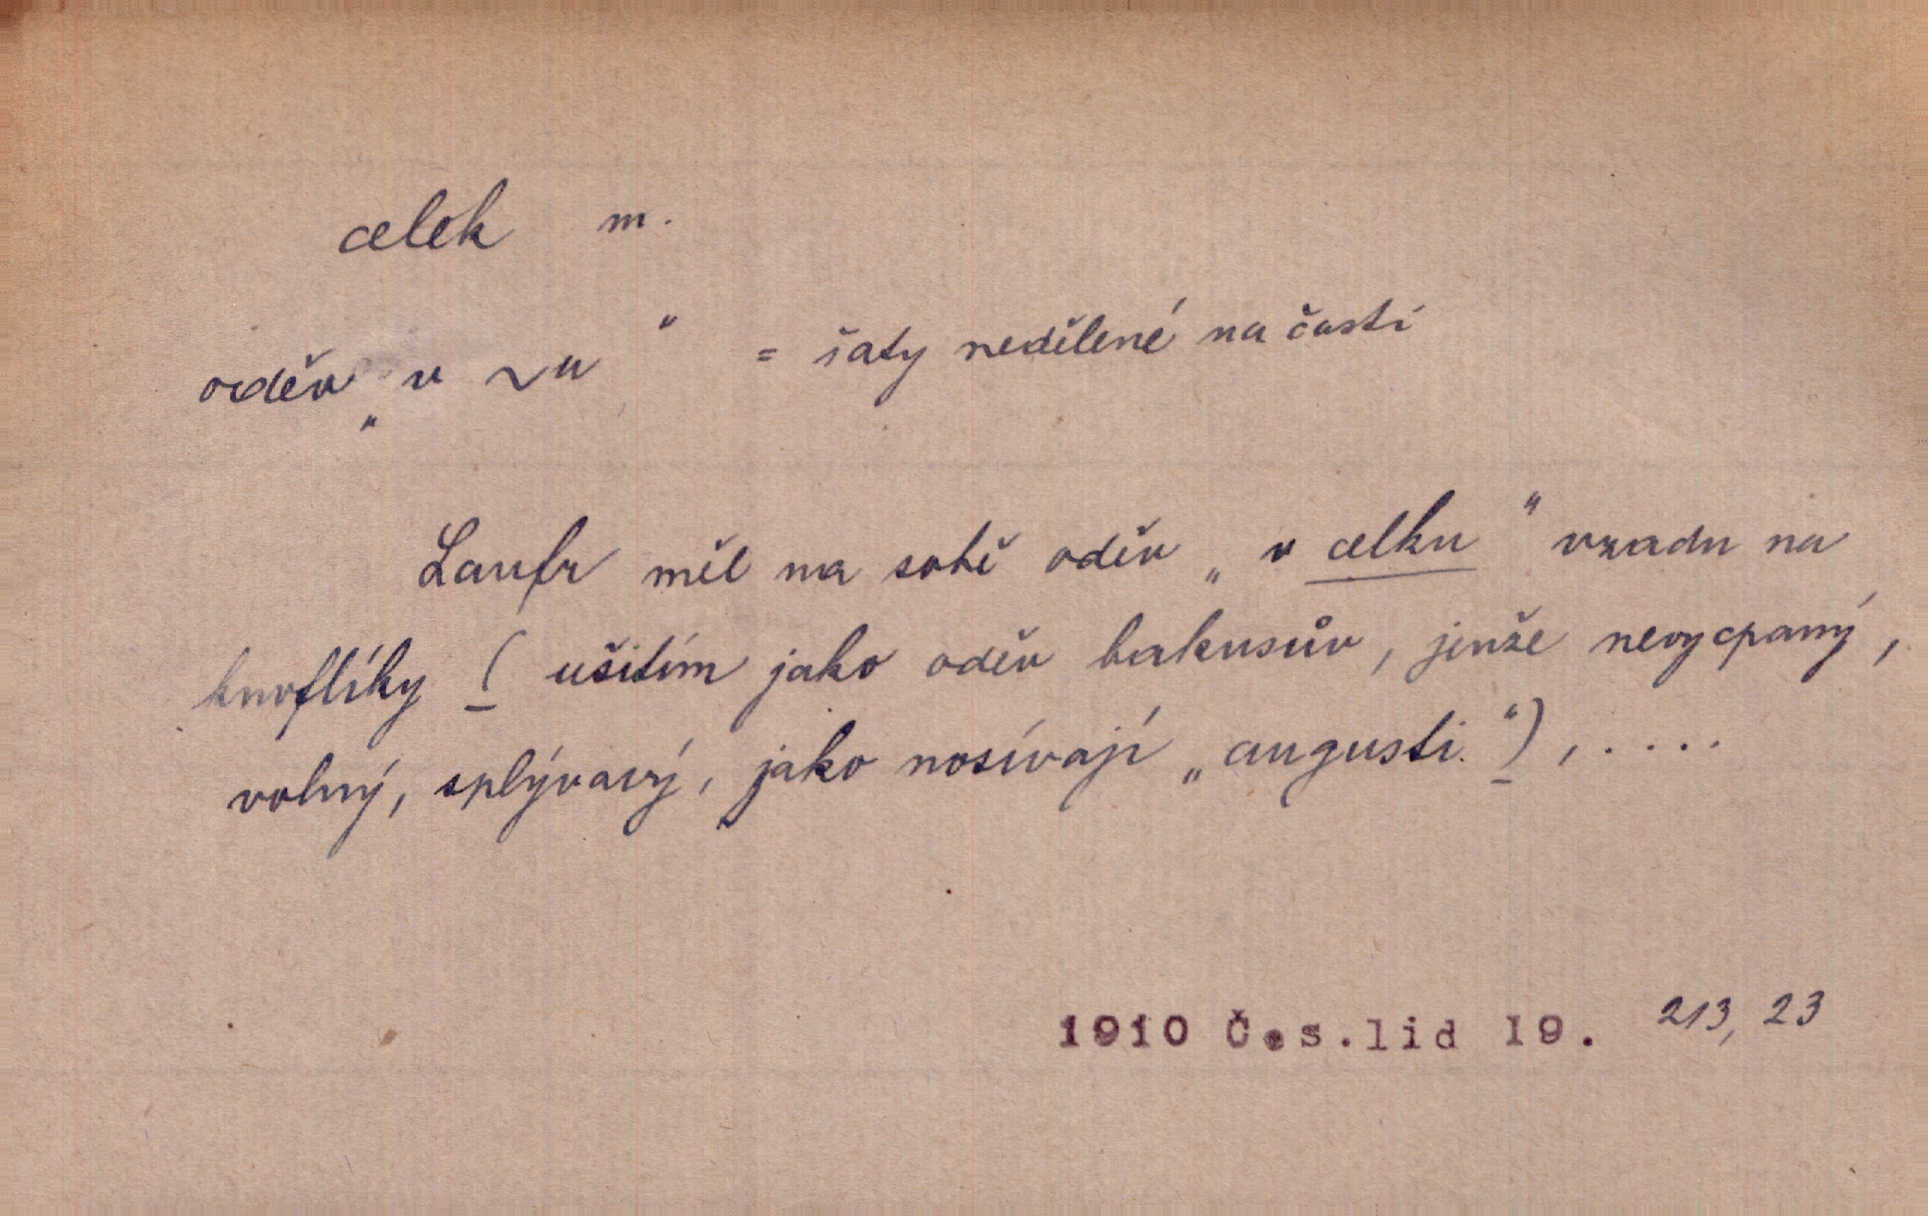 celek m.
oděv „v ~u“ = šaty nedělené na části
Laufr měl na sobě oděv „v celku“ vzadu na
knoflíky (ušitím jako oděv bakusův, jenže nevycpaný,
volný, splývavý, jako nosívají „augusti.“), . . . .
1910 Čes.lid 19. 213, 23